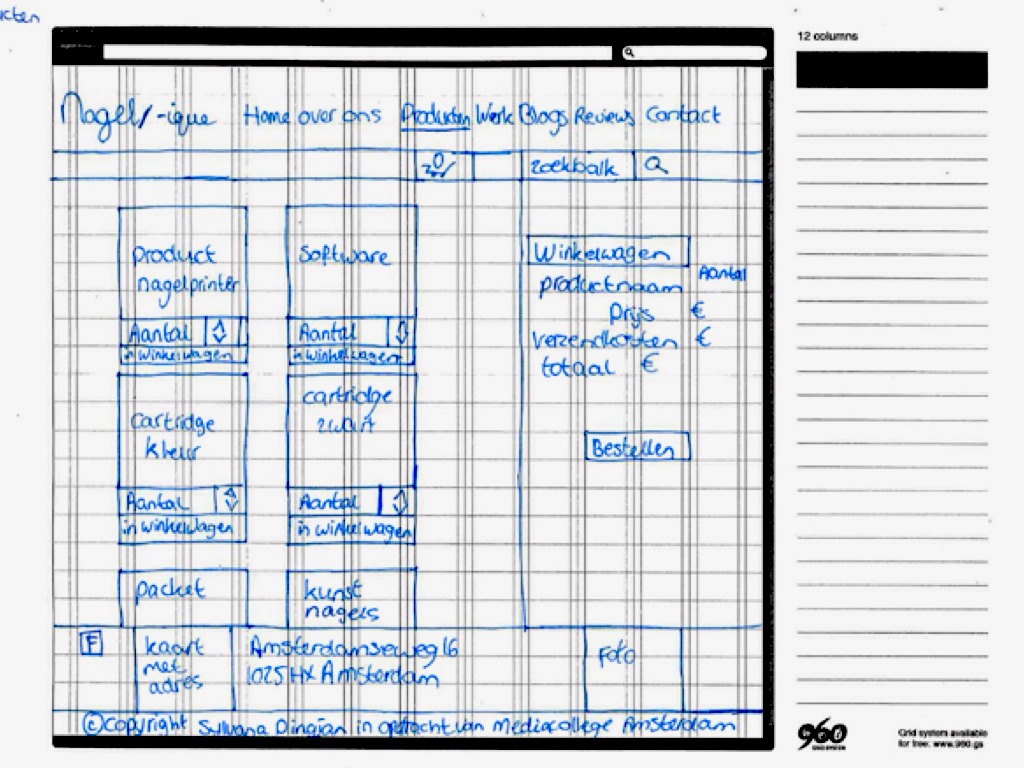 12 columns
Nagel/-ique Home over ons Producten Werk Blogs Reviews Contact
zoekbalk
product
nagelprinter
Aantal
in winkelwagen
software
Aantal
in winkelwagen
Winkelwagen
productnaam Aantal
Prijs €
verzendkosten €
totaal €
Bestellen
cartridge
kleur
Aantal
in winkelwagen
cartridge
zwart
Aantal
in winkelwagen
packet
kunst
nagels
F
kaart
met
adres
Amsterdamseweg 16
1025 HX Amsterdam
Foto
©copyright Sylvana Dingjan in opdracht van Mediacollege Amsterdam
960
GRID SYSTEM
Grid system available
for free: www.960.gs